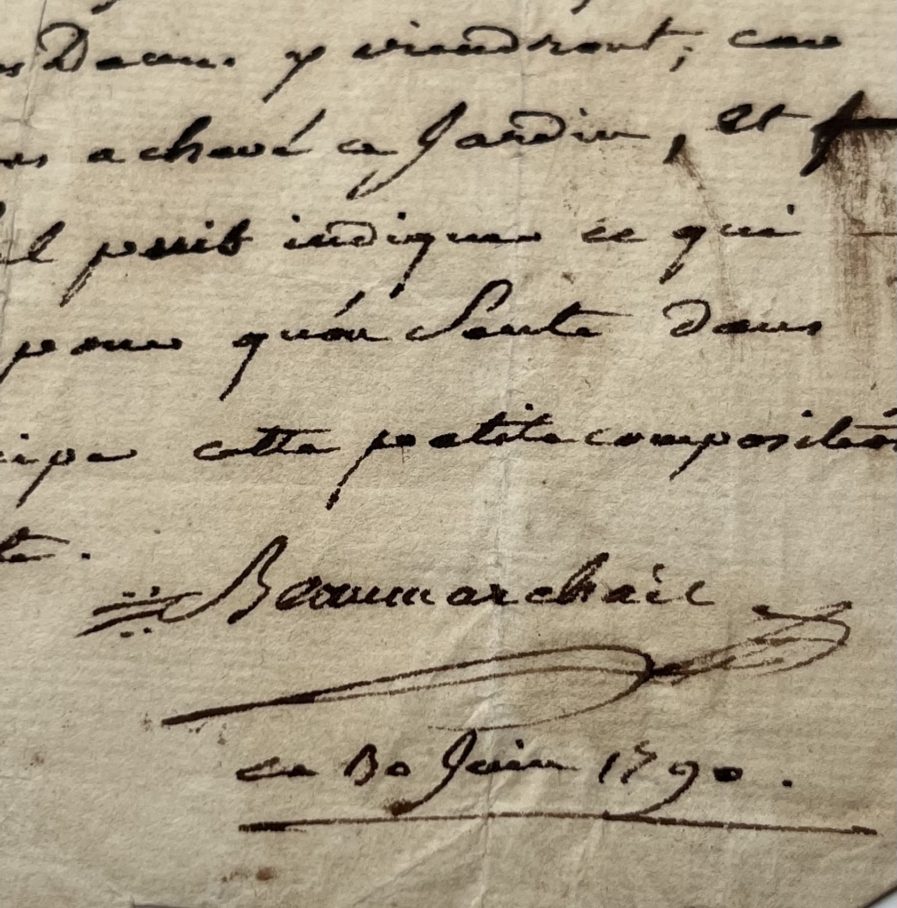 Dames y viendront; car
achevé ce Jardin, et
il peut indiquer ce qui
pour qu'on Sente dans
cipe cette petite composition
te.
Beaumarchais
ce 30 Juin 1790.